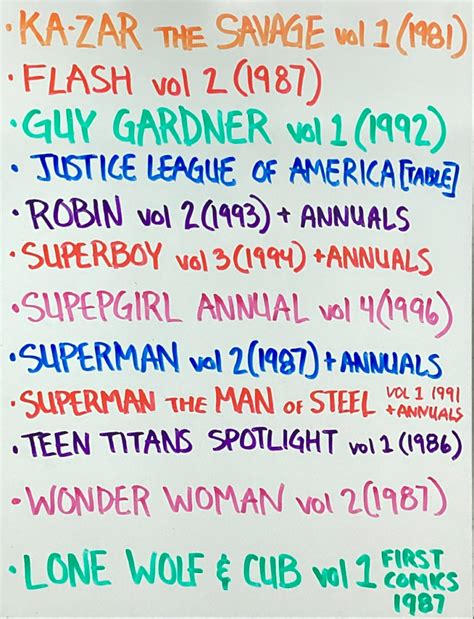 • KA-ZAR THE SAVAGE vol 1 (1981)
• FLASH vol 2 (1987)
• GUY GARDNER vol 1 (1992)
• JUSTICE LEAGUE OF AMERICA [TABLE]
• ROBIN vol 2 (1993) + ANNUALS
• SUPERBOY vol 3 (1994) + ANNUALS
• SUPEPGIRL ANNUAL vol 4 (1996)
• SUPERMAN vol 2 (1987) + ANNUALS
• SUPERMAN THE MAN OF STEEL VOL 1 1991
+ ANNUALS
• TEEN TITANS SPOTLIGHT vol 1 (1986)
• WONDER WOMAN vol 2 (1987)
• LONE WOLF & CUB vol 1 FIRST
COMICS
1987